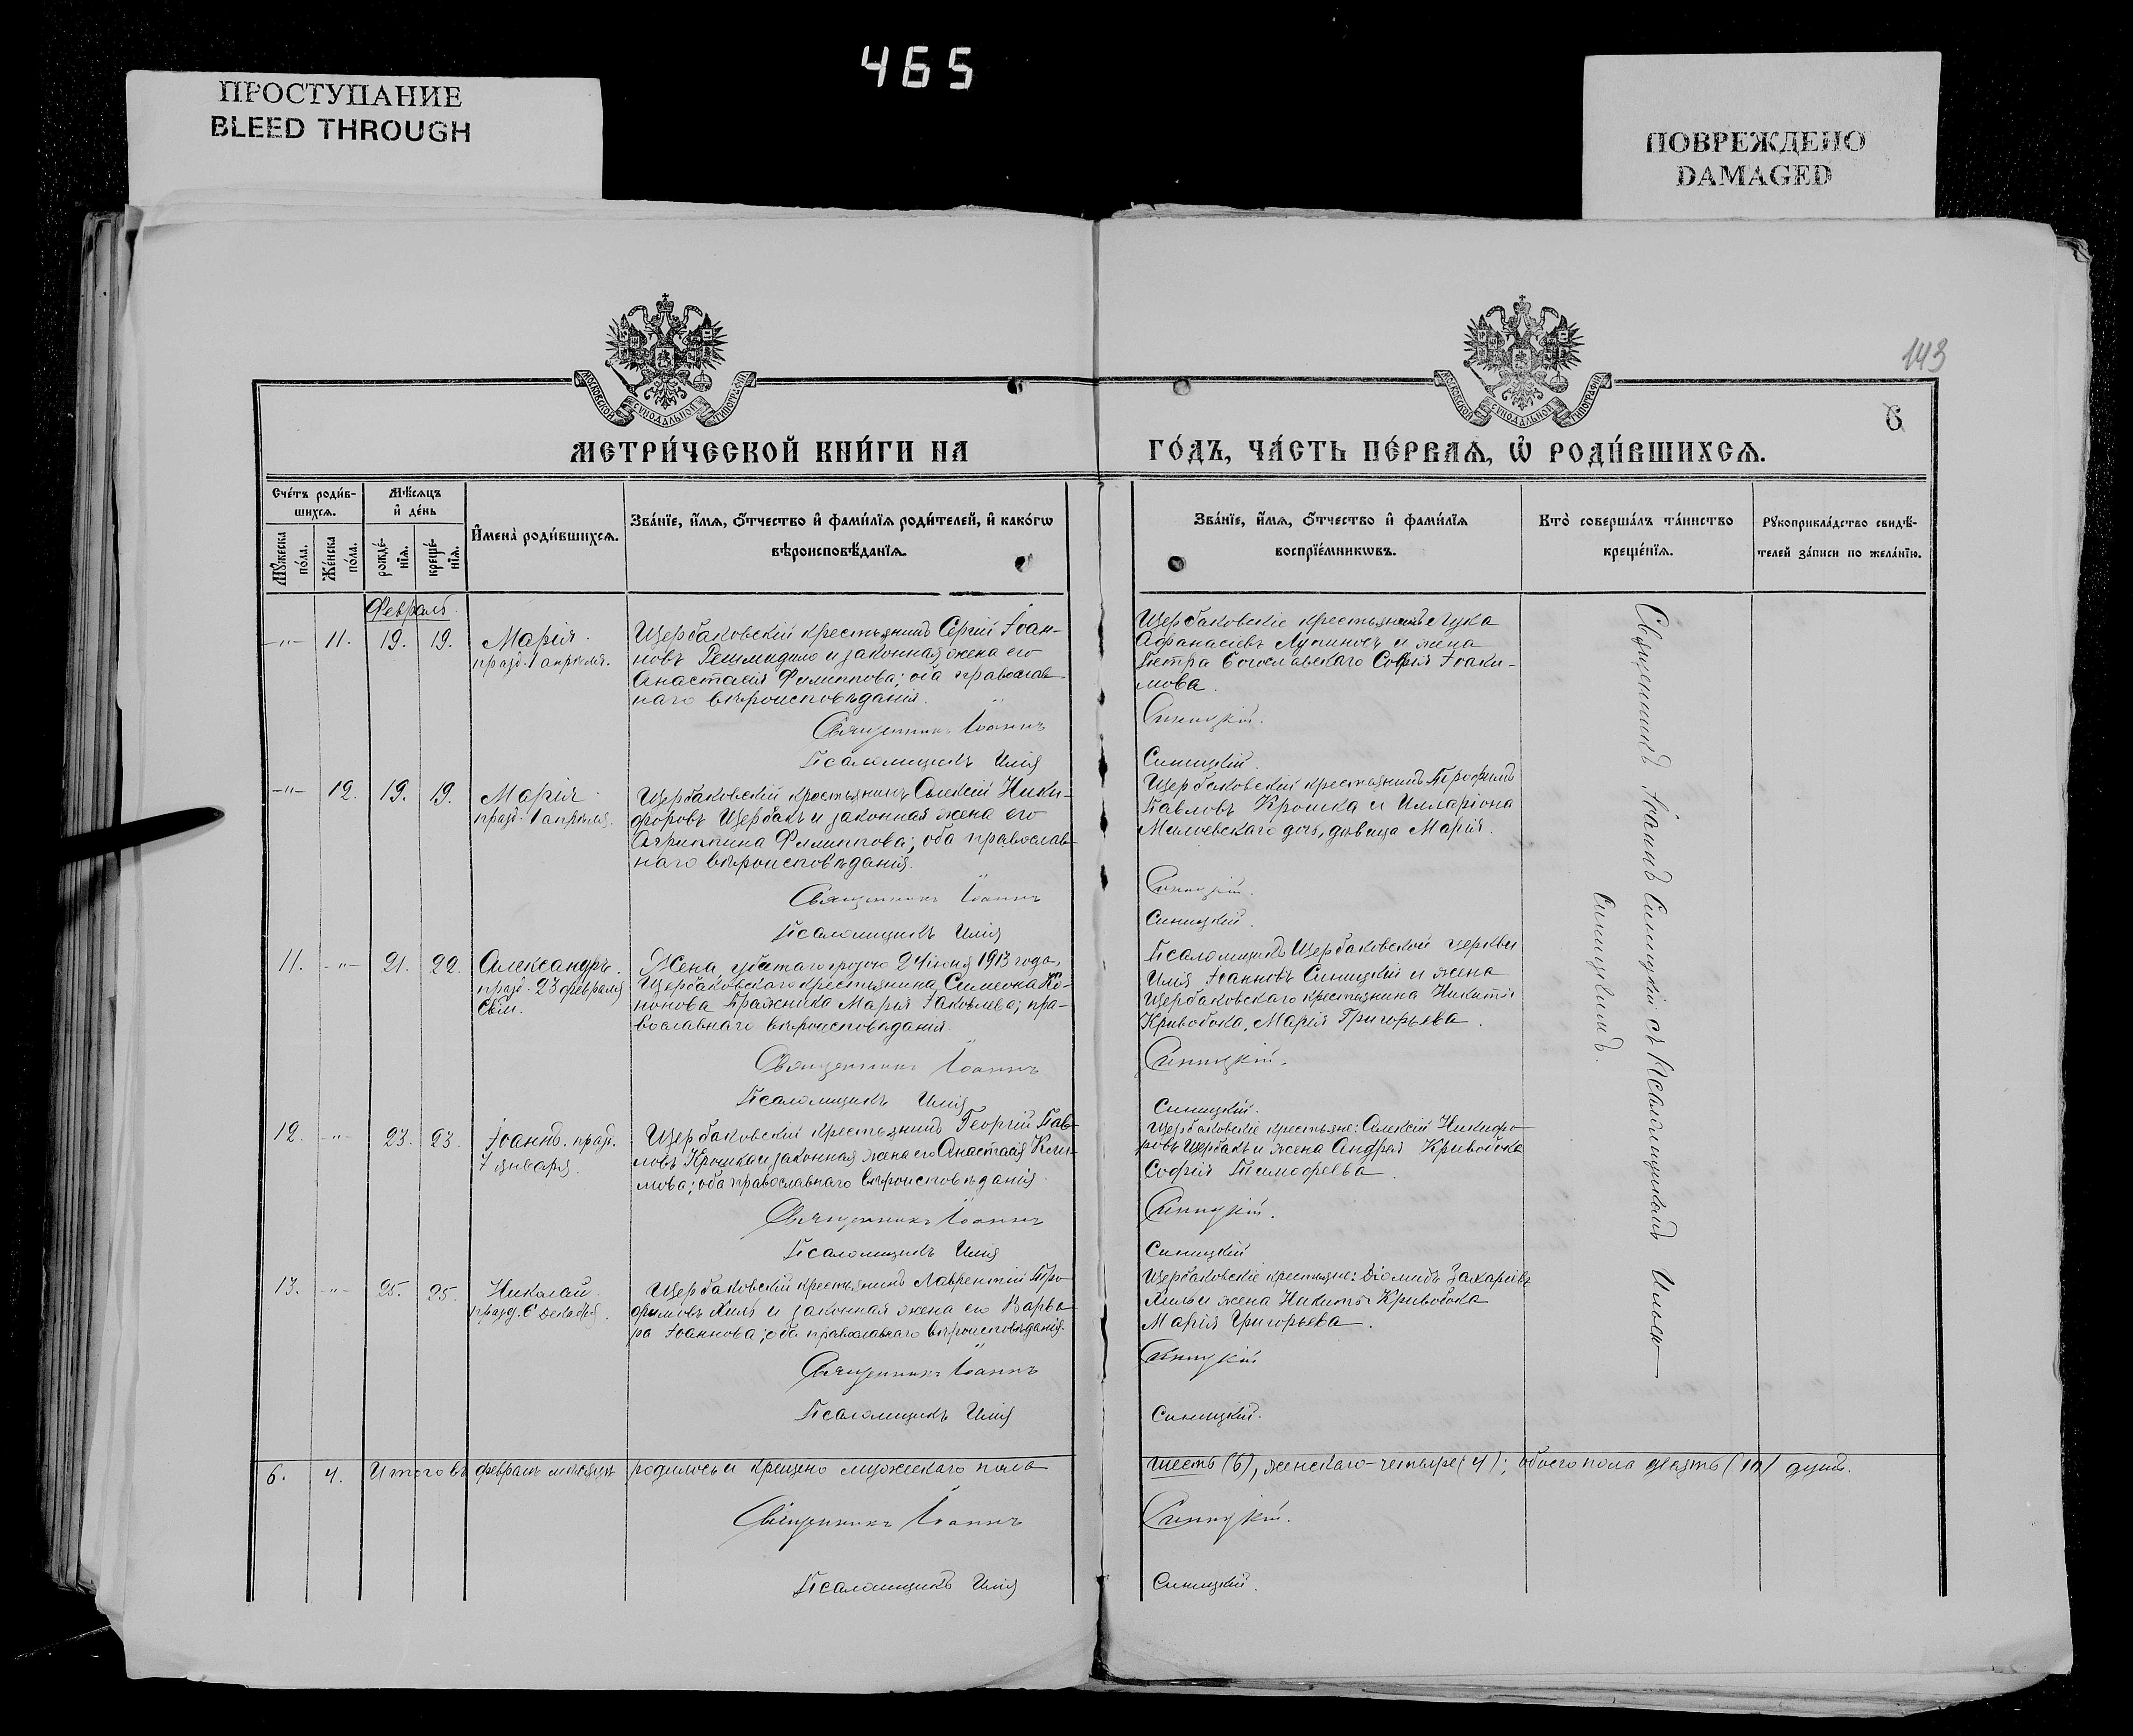 465
ПРОСТУПАНИЕ
BLEED THROUGH
ПОВРЕЖДЕНО
DAMAGED
143
МОСКОВСКОЙ СѴНОДАЛЬНОЙ ТИПОГРАФІИ
МОСКОВСКОЙ СѴНОДАЛЬНОЙ ТИПОГРАФІИ
6
МЕТРИ́ЧЕСКОЙ КНИ́ГИ НА
ГО́ДЪ, ЧА́СТЬ ПЕ́РВАѦ, Ѽ РОДИ́ВШИХСѦ.
Сче́тъ роди́в-
шихсѧ.
Мꙋ́жеска
по́ла.
Же́нска
по́ла.
Мѣ́сѧцъ
и҆ де́нь
рожде́-
нїѧ.
креще́-
нїѧ.
И҆мена̀ роди́вшихсѧ.
Зва́нїе, и҆́мѧ, ѻ҆́тчество и҆ фами́лїѧ роди́телей, и҆ како́гѡ
вѣроисповѣ́данїѧ.
Зва́нїе, и҆́мѧ, ѻ҆́тчество и҆ фами́лїѧ
воспрїе́мникѡвъ.
Кто̀ соверша́лъ та́инство
креще́нїѧ.
Рꙋкоприкла́дство свидѣ́-
телей за́писи по жела́нїю.
Февраль.
-"- 11. 19. 19.
Марія.
празд. 1 апрѣля.
Щербаковскій крестьянинъ Сергій Іоан-
новъ и законная жена его
Анастасія Филиппова; оба православ-
наго вѣроисповѣданія.
Священникъ Іоаннъ
Псаломщикъ Илія
Щербаковскіе крестьянинъ Лука
Афанасіевъ Лупиносъ и жена
Петра Богославскаго Софія Іоаки-
мова.
Синицкій.
Синицкій.
-"- 12. 19. 19.
Марія.
празд. 1 апрѣля.
Щербаковскій крестьянинъ Алексій Ники-
форовъ Щербакъ и законная жена его
Агриппина Филиппова; оба православ-
наго вѣроисповѣданія.
Священникъ Іоаннъ
Псаломщикъ Илія
Щербаковскій крестьянинъ Трофимъ
Павловъ Крошка и Илларіона
дочь, дѣвица Марія.
Синицкій.
Синицкій.
11. -"- 21. 22.
Александръ.
празд. 23 февраля
Жена, убитаго грозою 24 іюня 1913 года,
Щербаковскаго крестьянина Симеона Ко-
нонова Бражника Марія Іаковлева; пра-
вославнаго вѣроисповѣданія.
Священникъ Іоаннъ
Псаломщикъ Илія
Псаломщикъ Щербаковской церкви
Илія Іоанновъ Синицкій и жена
Щербаковскаго крестьянина Никиты
Кривобока, Марія Григорьева.
Синицкій.
Синицкій.
12. -"- 23. 23.
Іоаннъ. празд.
7 января.
Щербаковскій крестьянинъ Георгій Пав-
ловъ Крошка и законная жена его Анастасія Кли-
мова; оба православнаго вѣроисповѣданія.
Священникъ Іоаннъ
Псаломщикъ Илія
Щербаковскіе крестьяне: Алексій Никифо-
ровъ Щербакъ и жена Андрея Кривобока
Софія Тимофеева.
Синицкій.
Синицкій
13. -"- 25. 25.
Николай.
празд. 6 декабря.
Щербаковскій крестьянинъ Лаврентій Тро-
фимовъ Хиль и законная жена его Варва-
ра Іоаннова; оба православнаго вѣроисповѣданія.
Священникъ Іоаннъ
Псаломщикъ Илія
Щербаковскіе крестьяне: Діомидъ Захаріевъ
Хиль и жена Никиты Кривобока
Марія Григорьева.
Синицкій
Синицкій.
Священникъ Іоаннъ Синицкій съ Псаломщикомъ Иліею
Синицкимъ.
6. 4. Итого въ февралѣ мѣсяцѣ родилось и крещено мужескаго пола
шесть (6), женскаго-четыре (4); обоего пола десять (10) душъ.
Священникъ Іоаннъ
Синицкій.
Псаломщикъ Илія
Синицкій.